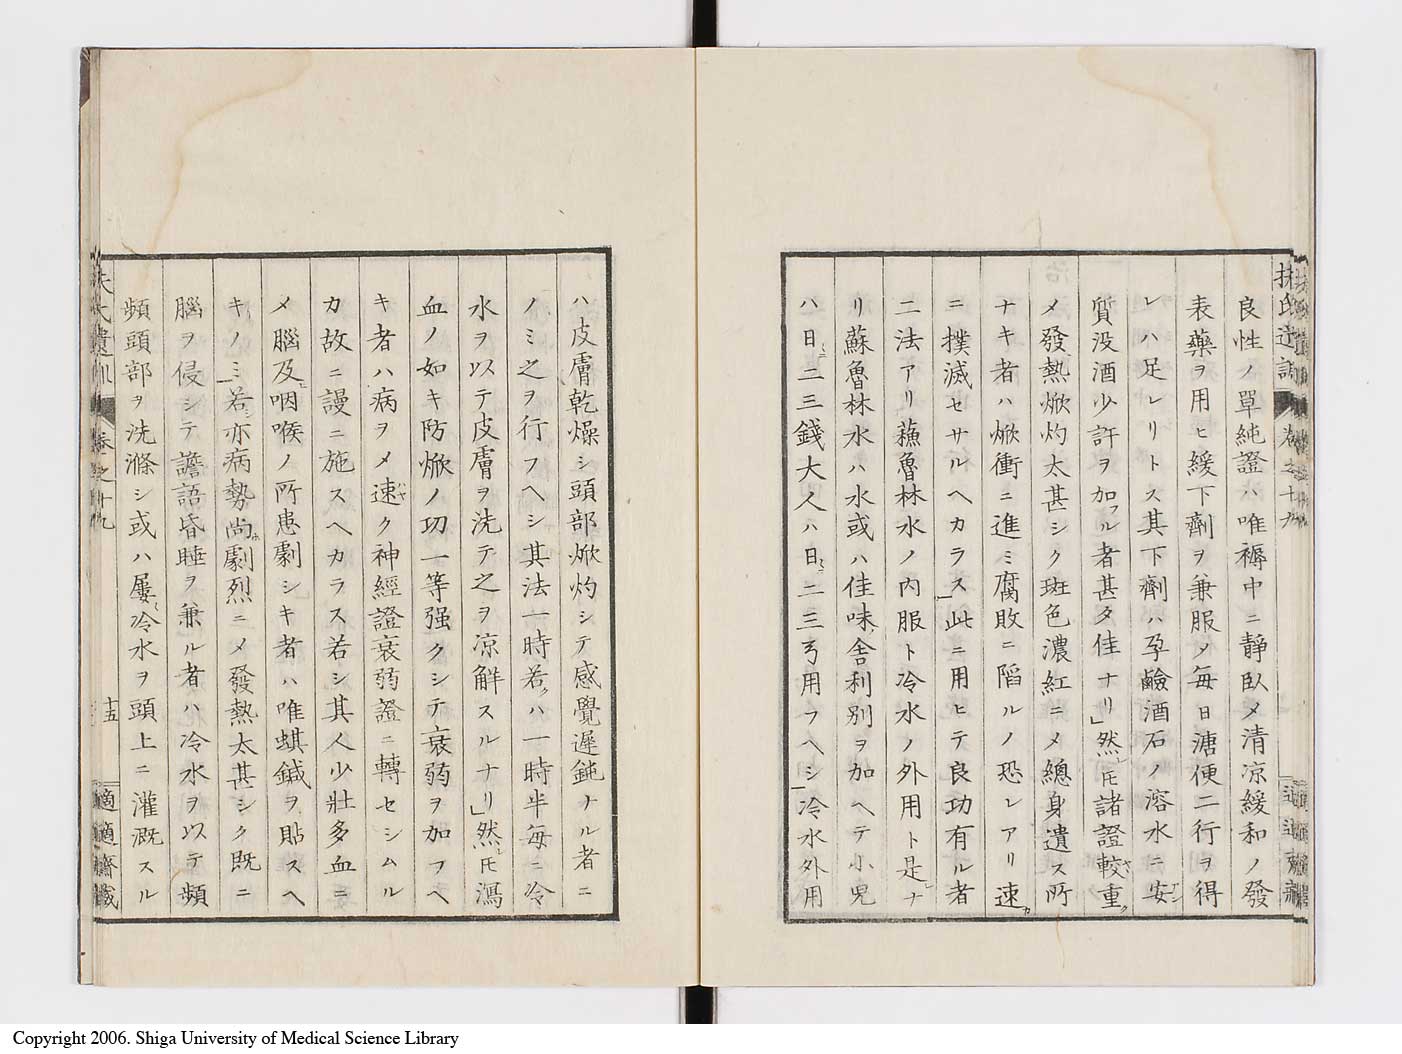 扶氏遺訓 卷之十九
適適齋藏
良性ノ單純證ハ唯褥中ニ靜臥メ清凉緩和ノ發
表藥ヲ用ヒ緩下劑ヲ兼服メ毎日溏便二行ヲ得
レハ足レリトス其下劑ハ孕鹼酒石ノ溶水ニ安
質没酒少許ヲ加フル者甚タ佳ナリ」然レ𪜈諸證較ヤ重ク
メ發熱焮灼太甚シク斑色濃紅ニメ總身遺ス所
ナキ者ハ焮衝ニ進ミ腐敗ニ陷ルノ恐レアリ速カ
ニ撲滅セサルヘカラス」此ニ用ヒテ良功有ル者
二法アリ蘓魯林水ノ内服ト冷水ノ外用ト是レナ
リ蘇魯林水ハ水或ハ佳味舍利別ヲ加ヘテ小兒
ハ日ニ二三錢大人ハ日ニ二三弓用フヘシ」冷水外用
ハ皮膚乾燥シ頭部焮灼シテ感覺遲鈍ナル者ニ
ノミ之ヲ行フヘシ其法一時若クハ一時半毎ニ冷
水ヲ以テ皮膚ヲ洗テ之ヲ凉解スルナリ」然レ𪜈瀉
血ノ如キ防焮ノ功一等强クシテ衰弱ヲ加フヘ
キ者ハ病ヲメ速ハヤク神經證衰弱證ニ轉セシムル
カ故ニ謾ニ施スヘカラス若シ其人少壯多血ニ
メ腦及ヒ咽喉ノ所患劇シキ者ハ唯蜞鍼ヲ貼スヘ
キノミ」若シ亦病勢尚ホ劇烈ニメ發熱太甚シク既ニ
腦ヲ侵シテ譫語昏睡ヲ兼ル者ハ冷水ヲ以テ頻
頻頭部ヲ洗滌シ或ハ屢〻冷水ヲ頭上ニ灌漑スル
扶氏遺訓 卷之十九
十五
適適齋藏
Copyright 2006. Shiga University of Medical Science Library